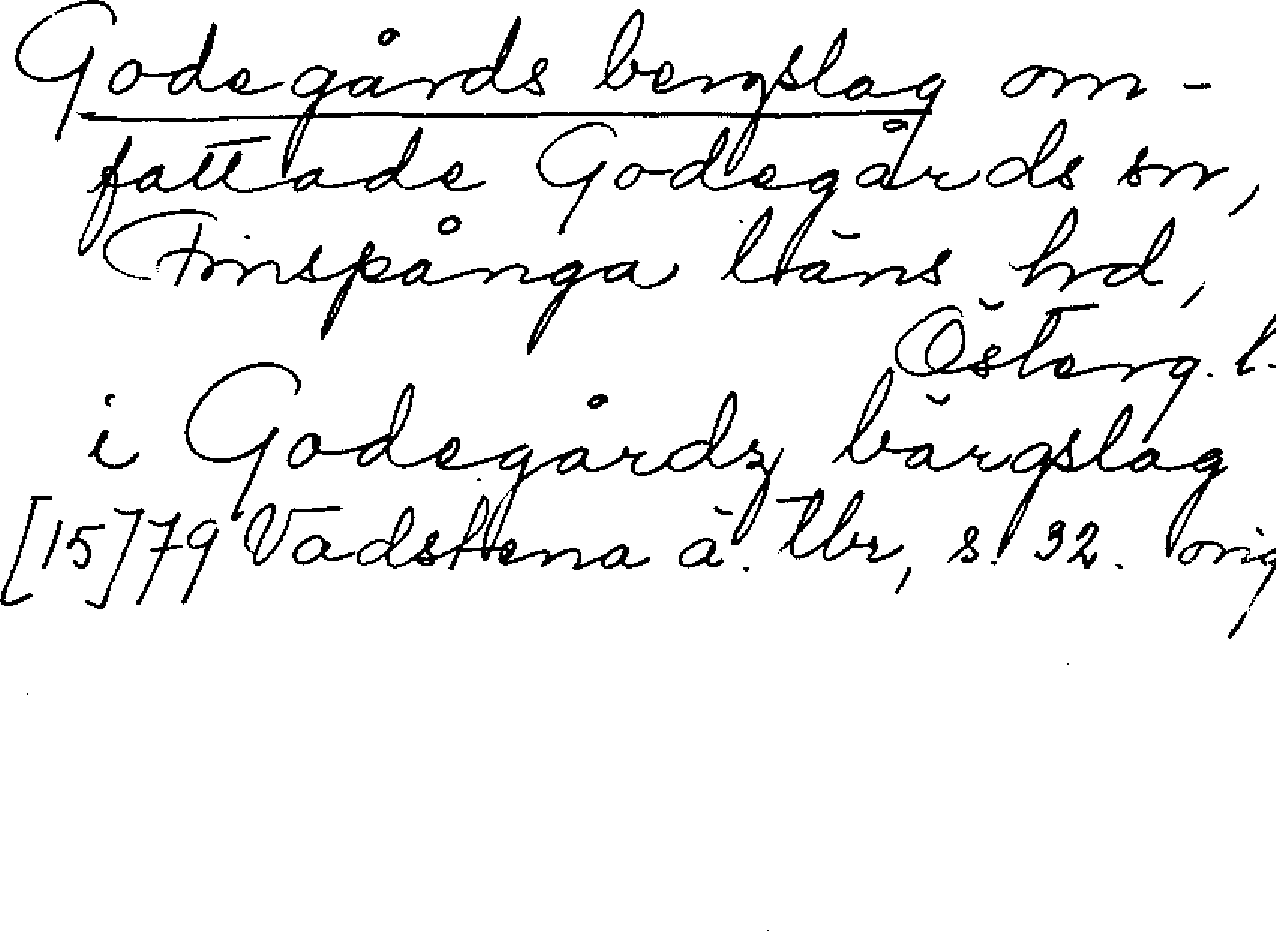 Godegårds bergslag om-
fattade Godegårds sn,
Finspånga läns hd,
Österg. l.
i Godegårdz bärgslag
[15]79 Vadstena ä. tbr, s. 32. orig